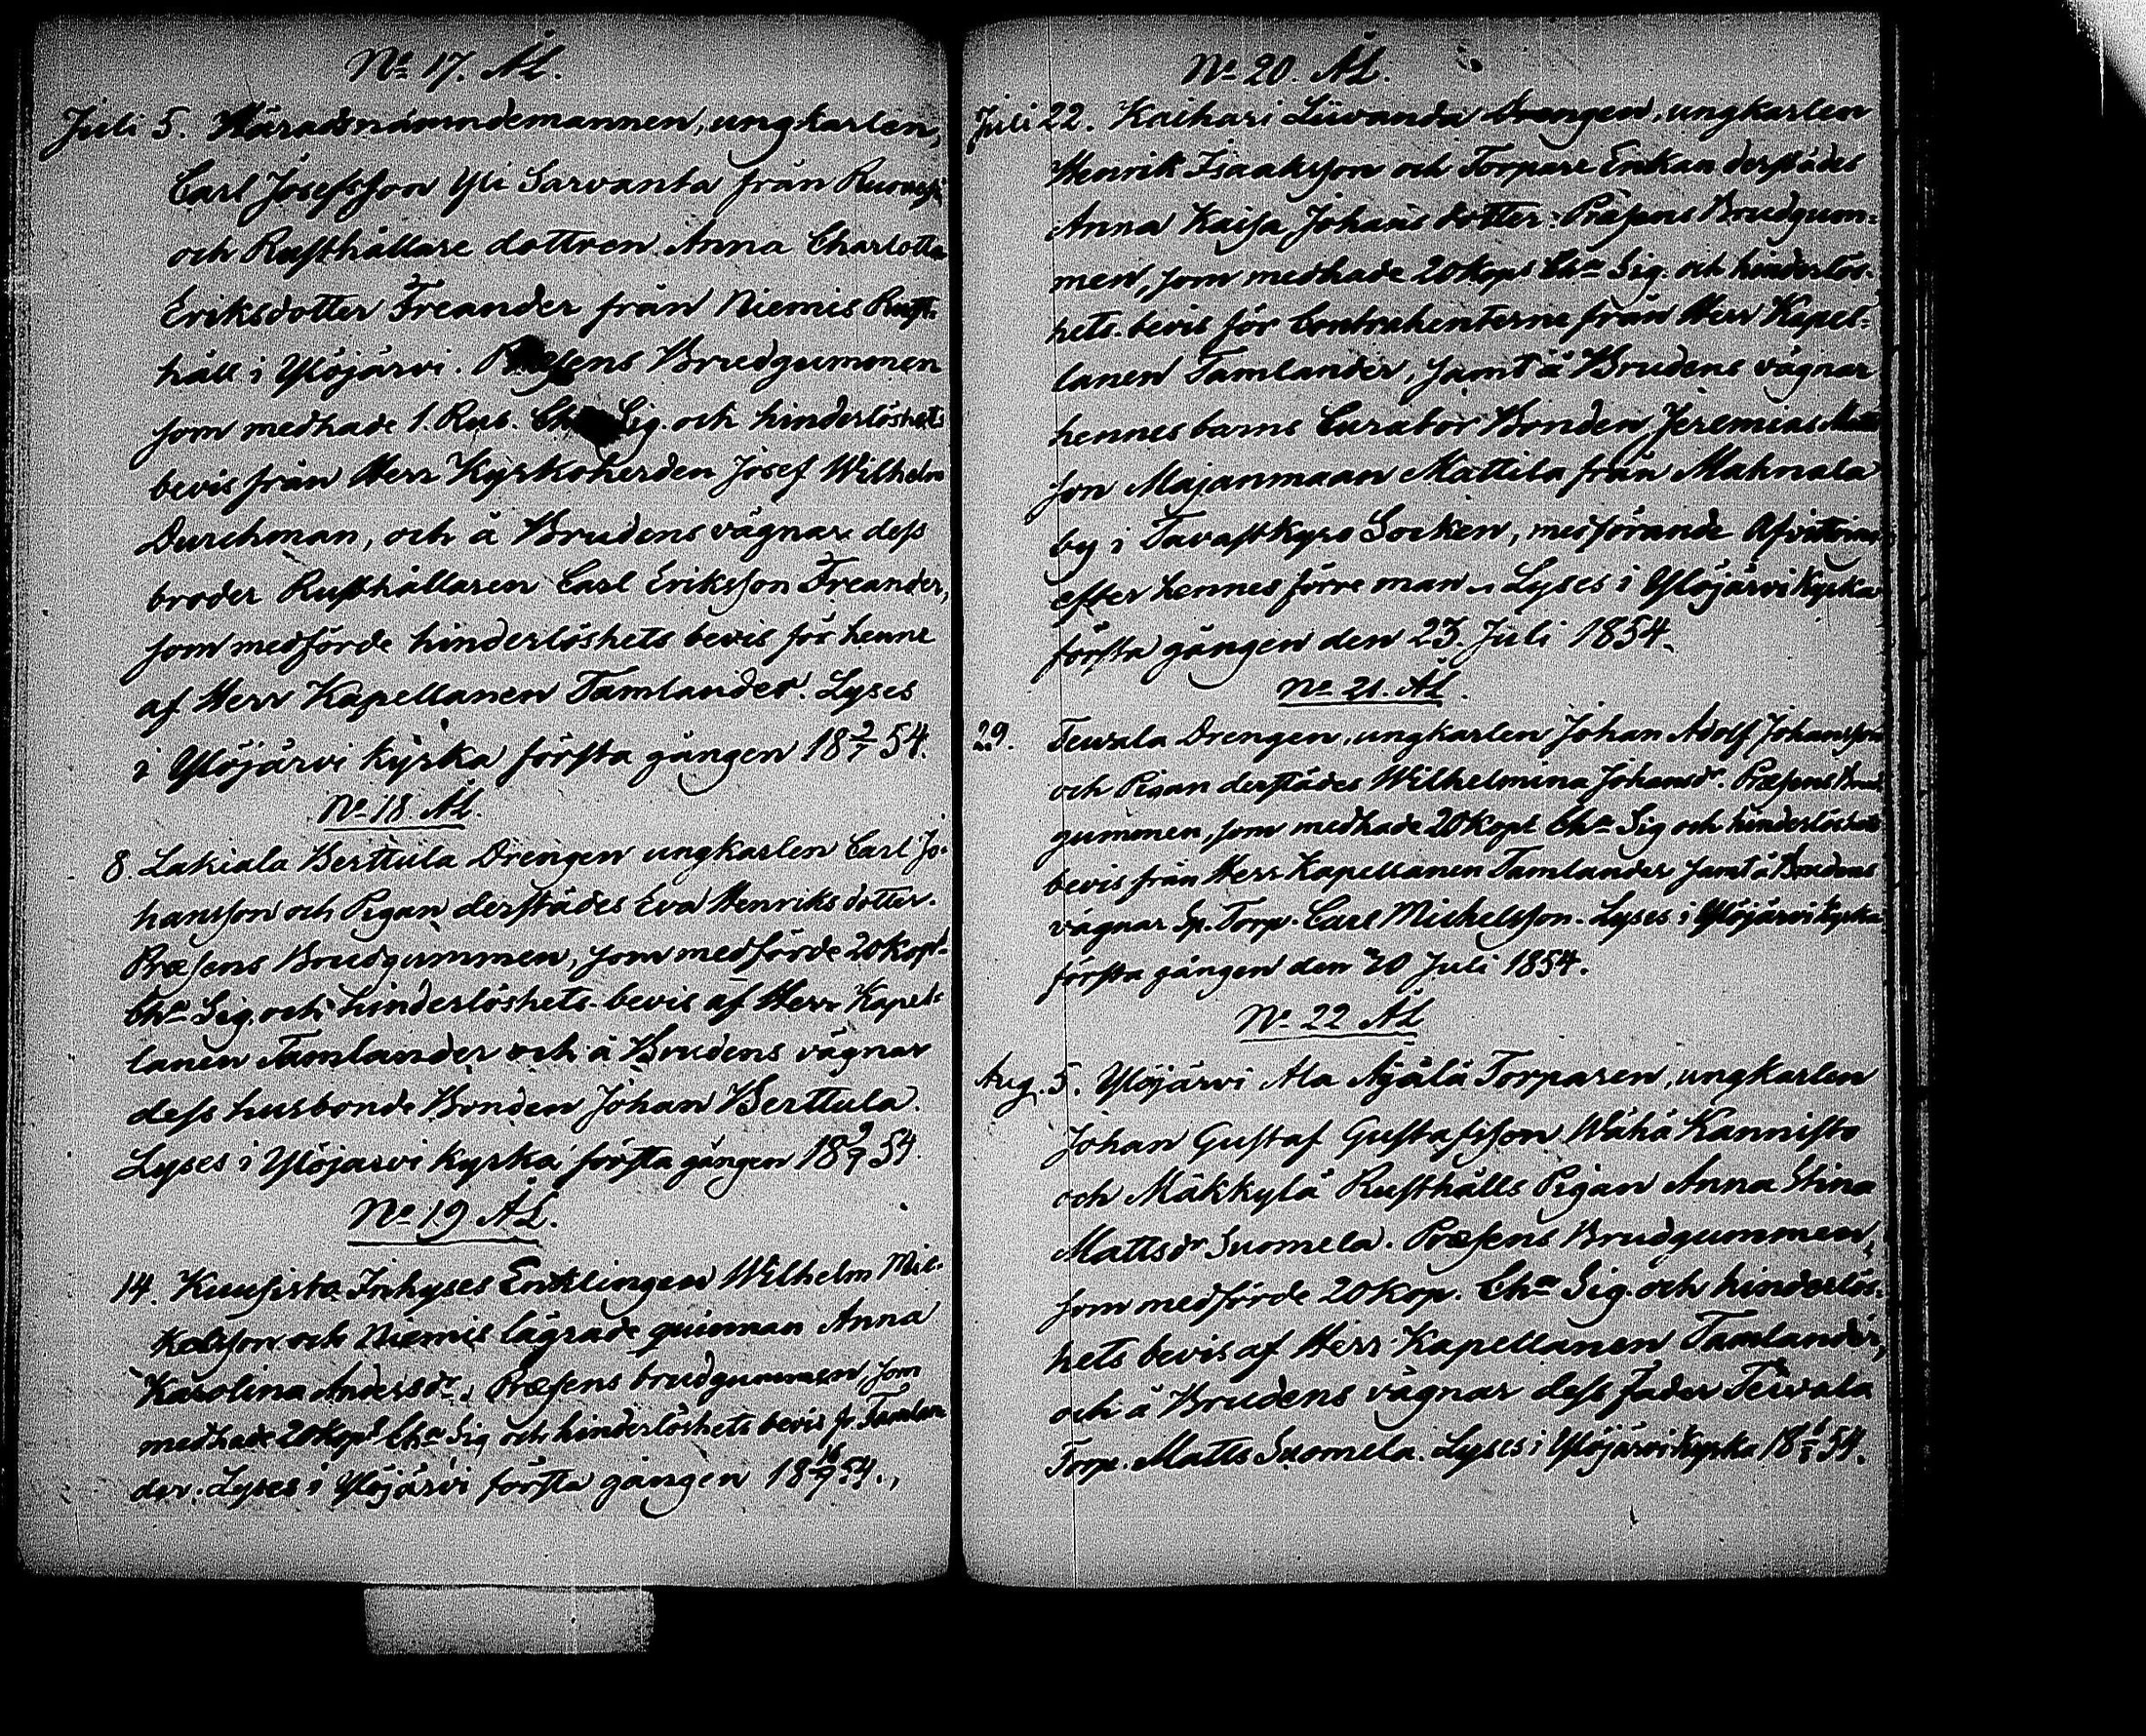 No 17. ÄL.
Juli 5. Häradsnämndemannen, ungkarlen,
Carl Josefsson Yli Sarvanta från Ruovesi
och Rusthållare dottren Anna Charlotta
Eriksdotter Freander från Niemis Rust-
håll i Ylöjärvi. Præsens Brudgummen
som medhade 1. Rub. Cha Sig. och hinderlöshets
bevis från Herr Kyrkoherden Josef Wilhelm
Durchman, och å Brudens vägnar dess
broder Rusthållaren Carl Eriksson Freander,
som medförde hinderlöshets bevis för henne
af Herr Kapellanen Tamlander. Lyses
i Ylöjärvi kyrka första gången 18 9/7 54.
No 18. ÄL.
8. Lakiala Berttula Drengen ungkarlen Carl Jo-
hansson och Pigan derstädes Eva Henriksdotter.
Præsens Brudgummen, som medförde 20 kops
Cha Sig. och hinderlöshets-bevis af Herr Kapel-
lanen Tamlander och å Brudens vägnar
dess husbonde Bonden Johan Berttula.
Lyses i Ylöjärvi kyrka första gången 18 9/7 54.
No 19. ÄL.
14. Kuusisto Inhyses Enklingen Wilhelm Mic-
kelsson och Niemis lägrade quinnan Anna
Karolina Andersdr. Præsens brudgummen, som
medhade 20 Kops Cha Sig och hinderlöshets bevis fr. Tamlan
der. Lyses i Ylöjärvi första gången 18 16/7 54.,
No 20. ÄL.
Juli 22. Kaihari Liuvanda Drengen, ungkarlen
Henrik Isaaksson och Torpare Enkan derstädes
Anna Kaisa Johans dotter. Præsens Brudgum-
men, som medhade 20 Kops Cha Sig. och hinderlös-
hets-bevis för Contrahenterne från Herr Kapel-
lanen Tamlander, samt å Brudens vägnar
hennes barns Curator Bonden Jeremias Matts
son Majanmaan Mattila från Mahnala
by i Tavastkyro Socken, medförande Afvittring
efter hennes förre man. Lyses i Ylöjärvi Kyrka
första gången den 23 Juli 1854.
No 21. ÄL.
29. Teivala Drengen, ungkarlen Johan Adolf Johansson
och Pigan derstädes Wilhelmina Johansdr. Præsens Brud
gummen, som medhade 20 Kops Cha Sig och hinderlöshets
bevis från Herr Kapellanen Tamlander samt å Brudens
vägnar Sp. Torp. Carl Michelsson. Lyses i Ylöjärvi kyrka
första gången den 30 Juli 1854.
No 22 ÄL
Aug. 5. Ylöjärvi Ala Äijälä Torparen, ungkarlen
Johan Gustaf Gustafsson Wähä Kannisto
och Mäkkylä Rusthålls Pigan Anna Stina
Mattsdr Suomela. Præsens Brudgummen,
som medförde 20 Kop. Cha Sig. och hinderlös-
hets bevis af Herr Kapellanen Tamlander,
och å Brudens vägnar dess fader Teivala
Torp. Matts Suomela. Lyses i Ylöjärvi Kyrka 18 6/8 54.